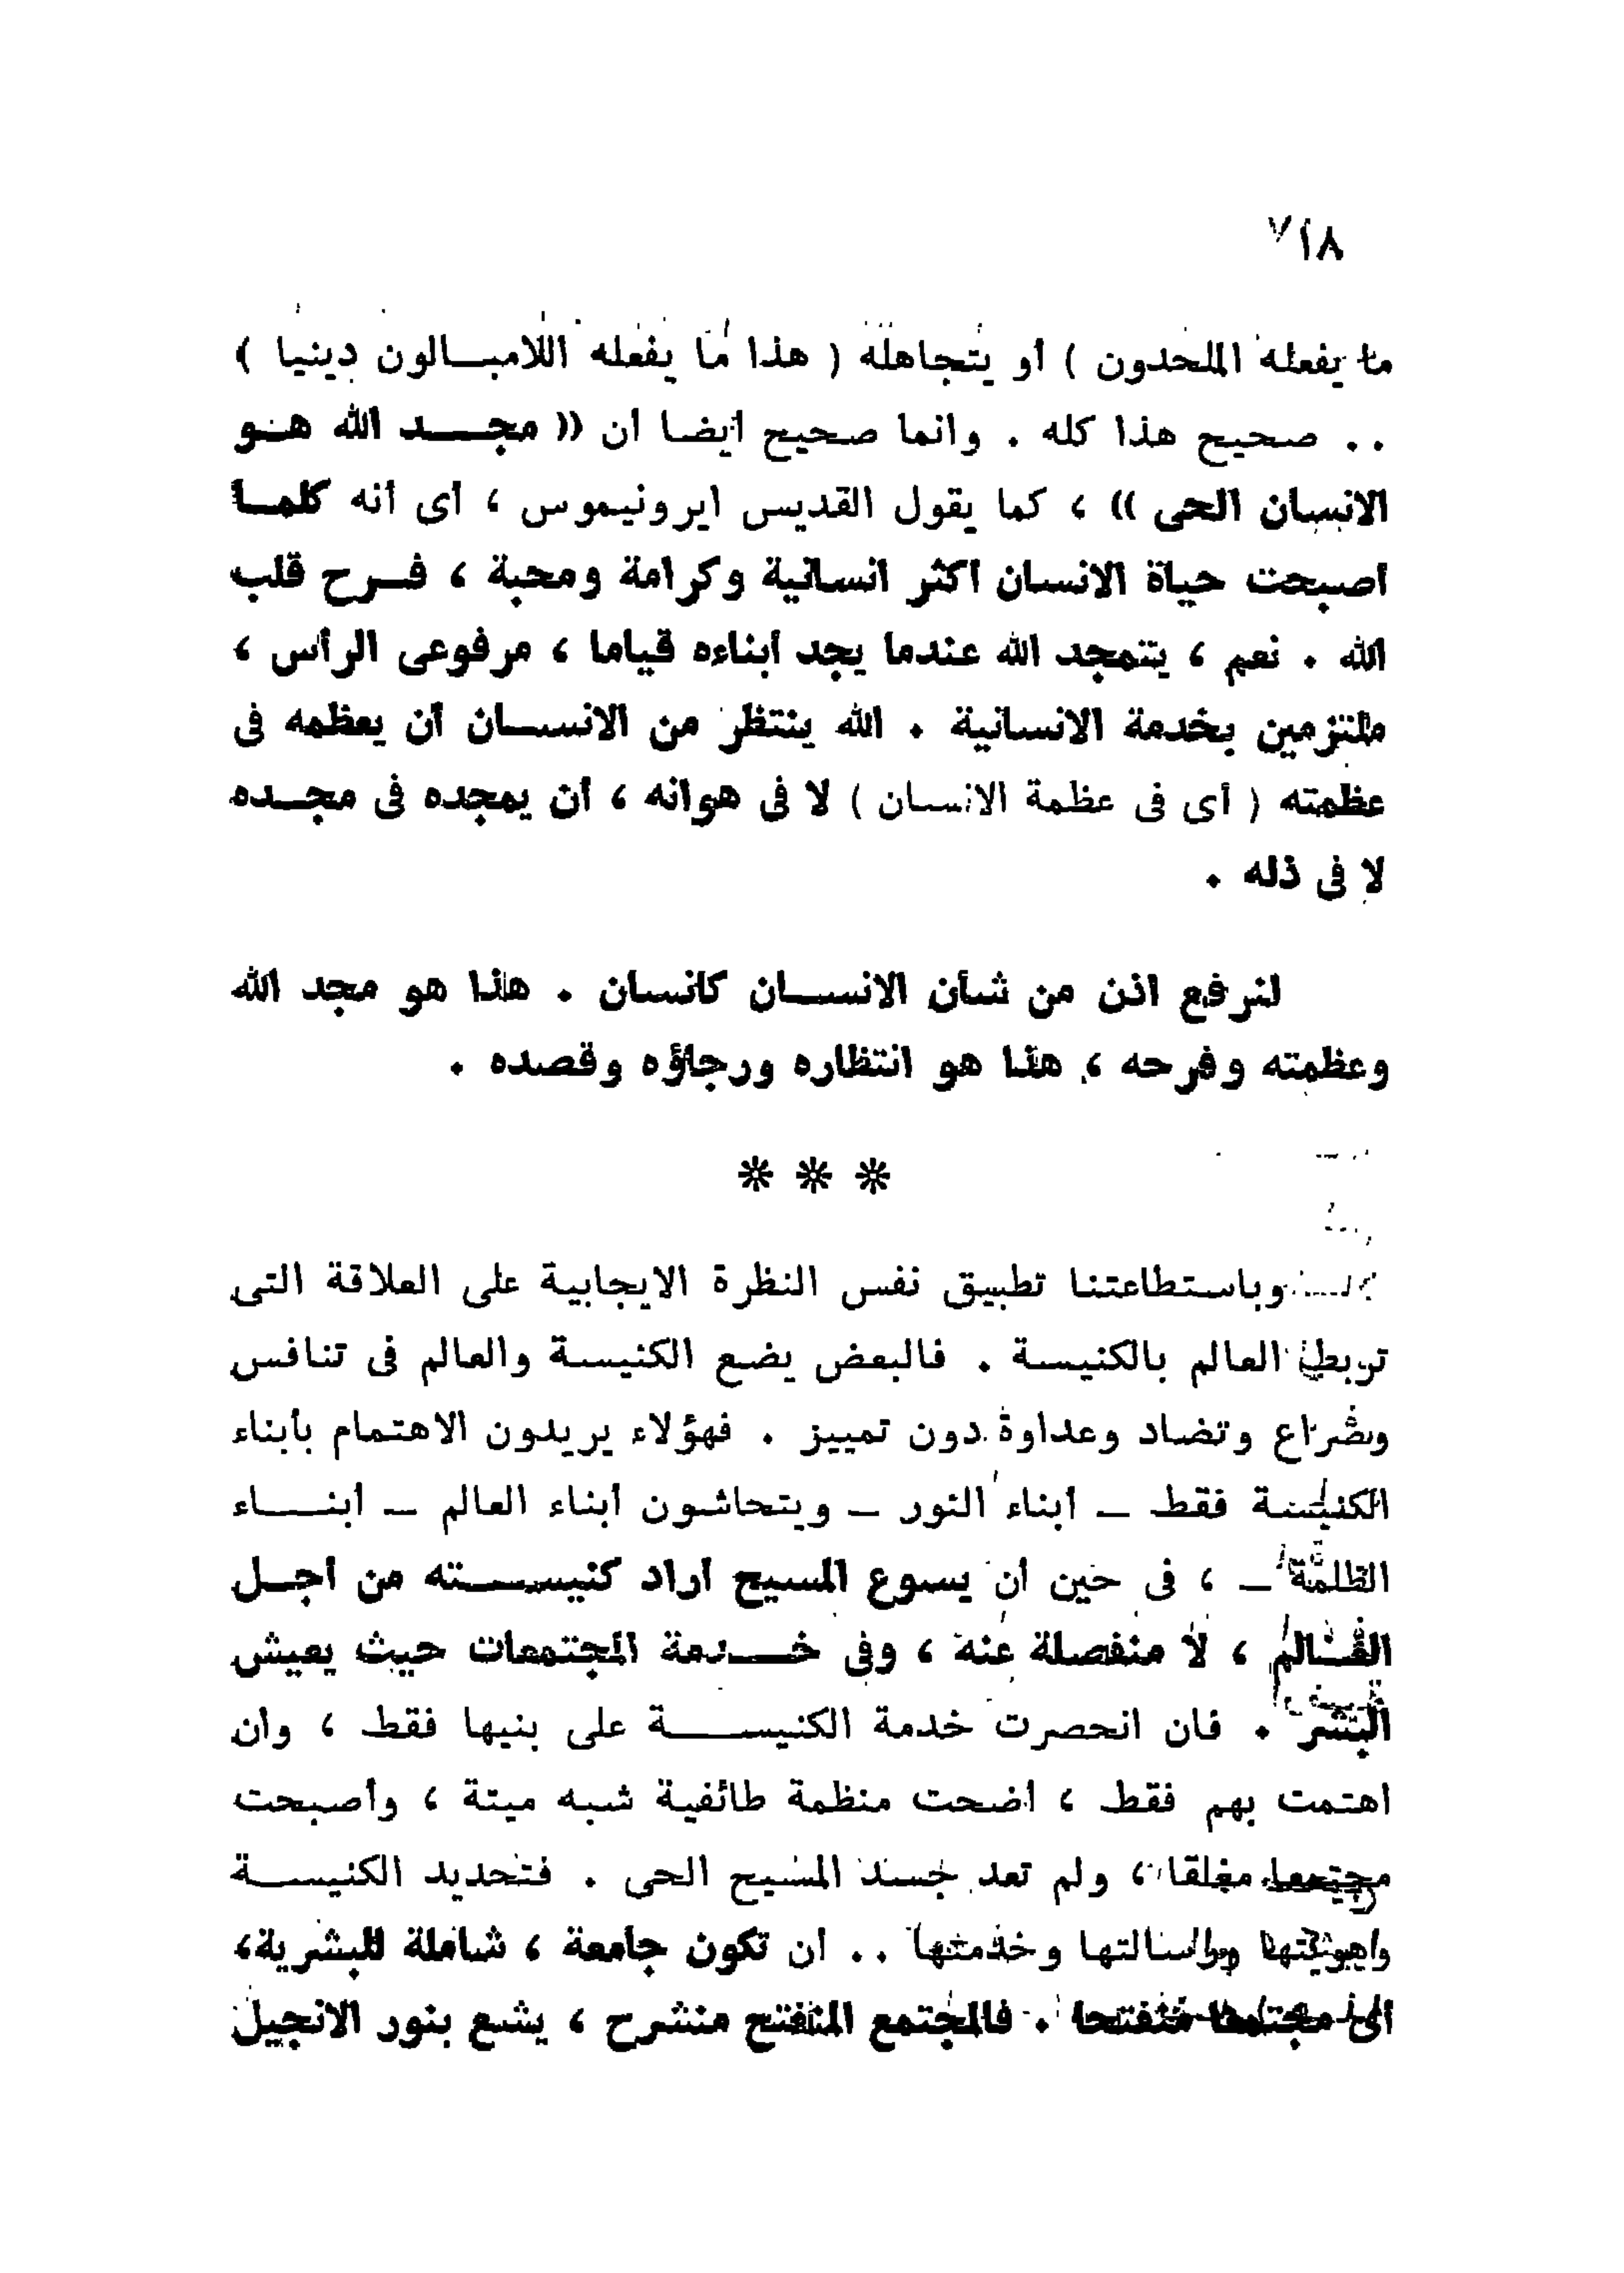 ١٨
ما يفعله الملحدون ) أو يتجاهله ( هذا ما يفعله اللامبالون دينيا )
.. صحيح هذا كله . وانما صحيح ايضا ان (( مجد الله هو
الانسان الحى )) ، كما يقول القديس ايرونيموس ، أى أنه كلما
أصبحت حياة الانسان أكثر انسانية وكرامة ومحبة ، فرح قلب
الله . نعم ، يتمجد الله عندما يجد أبناءه قياما ، مرفوعى الرأس ،
ملتزمين بخدمة الانسانية . الله ينتظر من الانسان أن يعظمه فى
عظمته ( أى فى عظمة الانسان ) لا فى هوانه ، أن يمجده فى مجده
لا فى ذله .
لنرفع اذن من شأن الانسان كانسان . هذا هو مجد الله
وعظمته وفرحه ، هذا هو انتظاره ورجاؤه وقصده .
* * *
وباستطاعتنا تطبيق نفس النظرة الايجابية على العلاقة التى
تربط العالم بالكنيسة . فالبعض يضع الكنيسة والعالم فى تنافس
وصراع وتضاد وعداوة دون تمييز . فهؤلاء يريدون الاهتمام بأبناء
الكنيسة فقط – أبناء النور – ويتحاشون أبناء العالم – أبناء
الظلمة – ، فى حين أن يسوع المسيح أراد كنيسته من أجل
العالم ، لا منفصلة عنه ، وفى خدمة المجتمعات حيث يعيش
البشر . فان انحصرت خدمة الكنيسة على بنيها فقط ، وان
اهتمت بهم فقط ، أضحت منظمة طائفية شبه ميتة ، وأصبحت
مجتمعا مغلقا ، ولم تعد جسد المسيح الحى . فتحديد الكنيسة
وهويتها ورسالتها وخدمتها .. أن تكون جامعة ، شاملة للبشرية،
أى مجتمعا منفتحا . فالمجتمع المنفتح منشرح ، يشع بنور الانجيل